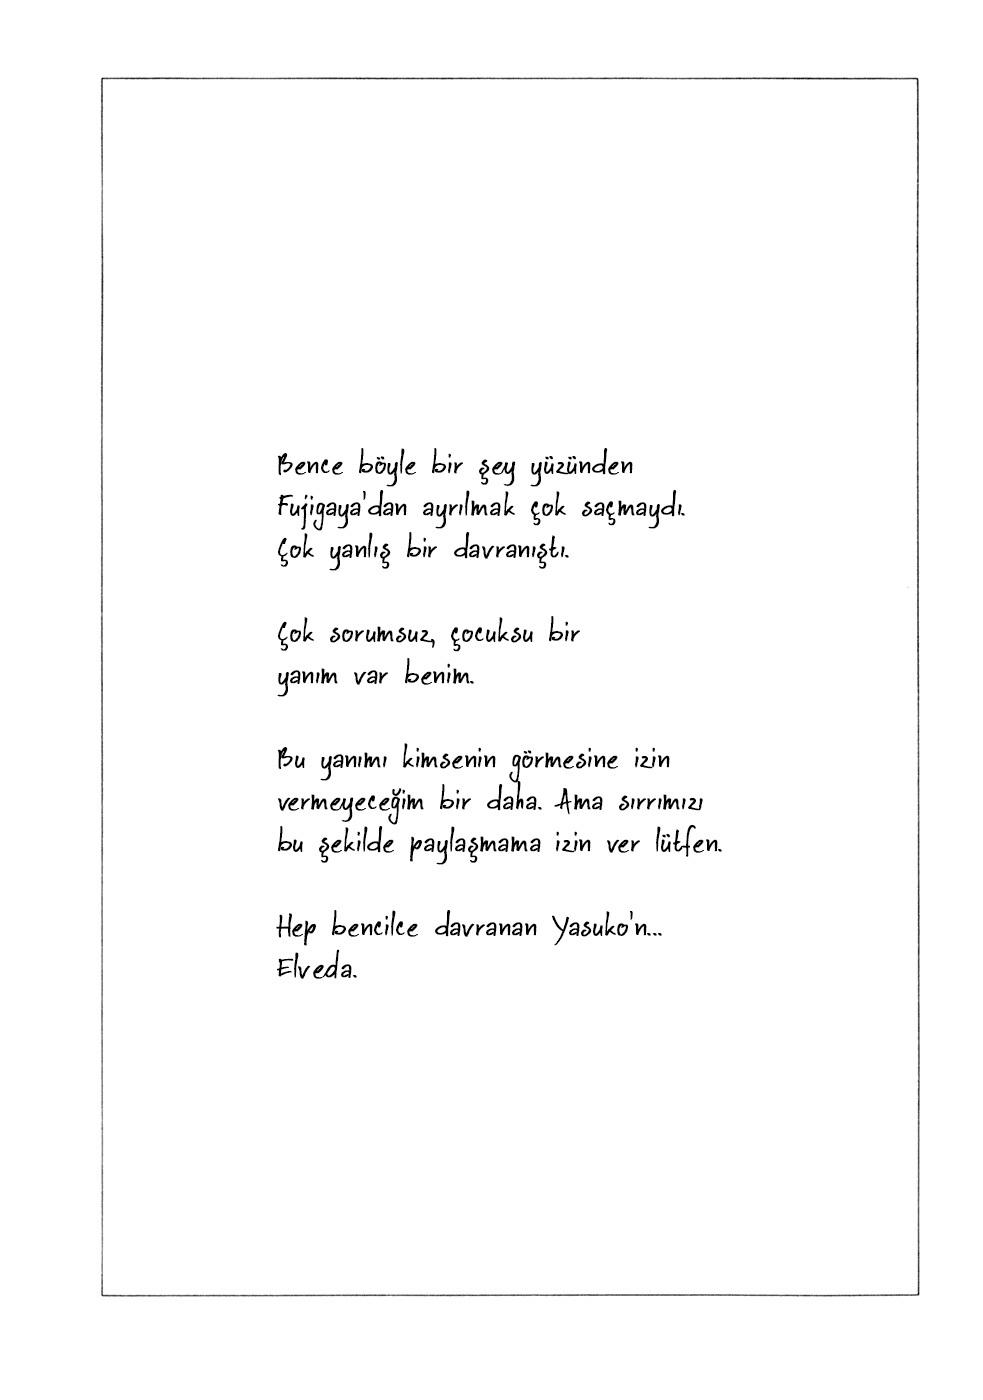 Bence böyle bir şey yüzünden
Fujigaya'dan ayrılmak çok saçmaydı.
Çok yanlış bir davranıştı.
Çok sorumsuz, çocuksu bir
yanım var benim.
Bu yanımı kimsenin görmesine izin
vermeyeceğim bir daha. Ama sırrımızı
bu şekilde paylaşmama izin ver lütfen.
Hep bencilce davranan Yasuko'n...
Elveda.